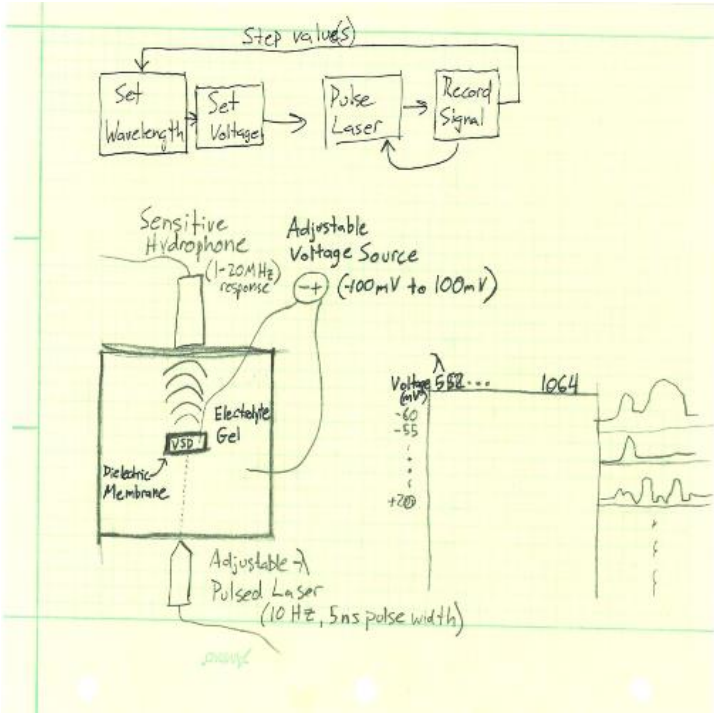 Step value(s)
Set
Wavelength
Set
Voltage
Pulse
Laser
Record
Signal
Sensitive
Hydrophone
(1-20MHz
response)
Adjustable
Voltage Source
-+ (-100mV to 100mV)
VSD
Electrolyte
Gel
Dielectric
Membrane
Adjustable-λ
Pulsed Laser
(10 Hz, 5ns pulse width)
λ
Voltage
(mV)
... 1064
-60
-55